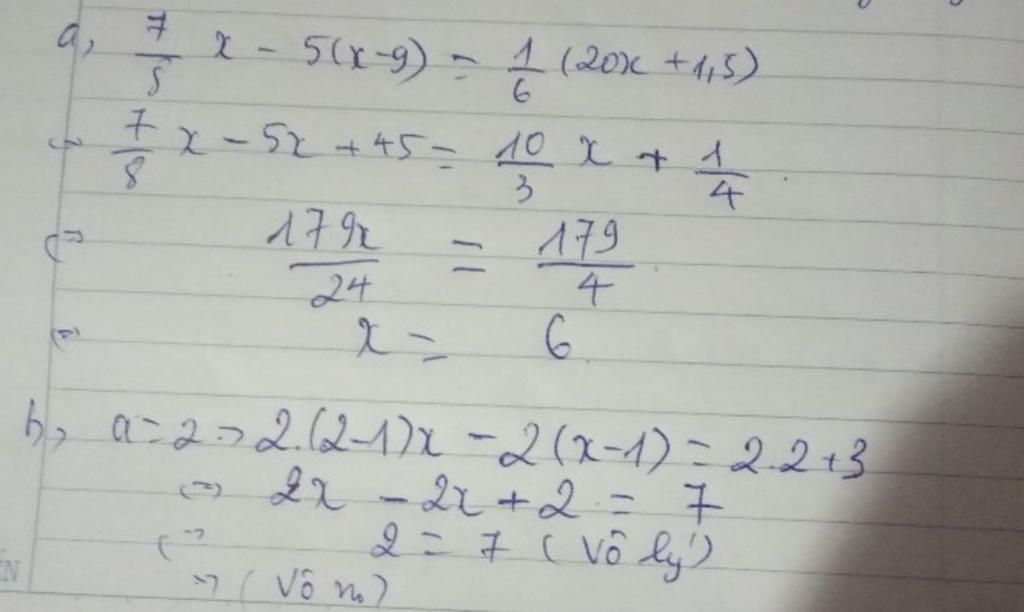 a, 7/8 x - 5(x-9) = 1/6 (20x + 1,5)
⇔ 7/8 x - 5x + 45 = 10/3 x + 1/4
⇔ 179x/24 = 179/4
⇔ x = 6
b, a = 2 → 2.(2-1)x - 2(x-1) = 2.2+3
⇔ 2x - 2x + 2 = 7
⇔ 2 = 7 (Vô lý)
⇒ (Vô no)